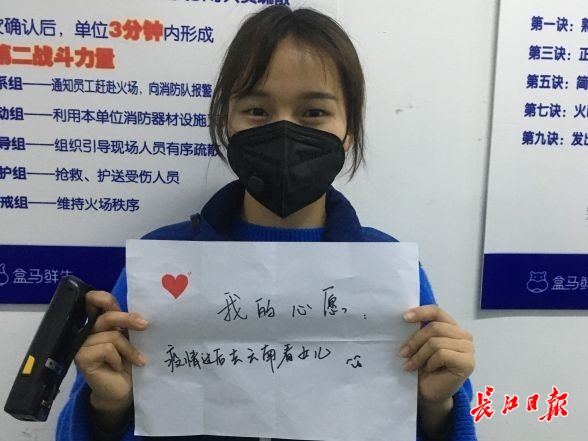 次确认后，单位3分钟内形成
第二战斗力量
系组——通知员工赶赴火场，向消防队报警
动组——利用本单位消防器材设施
导组——组织引导现场人员有序疏散
护组——抢救、护送受伤人员
戒组——维持火场秩序
盒马鲜生
第一诀：
第三诀：正
第五诀：简
第七诀：火
第九诀：发
盒马鲜
我的心愿：
疫情过后去云南看女儿
长江日报